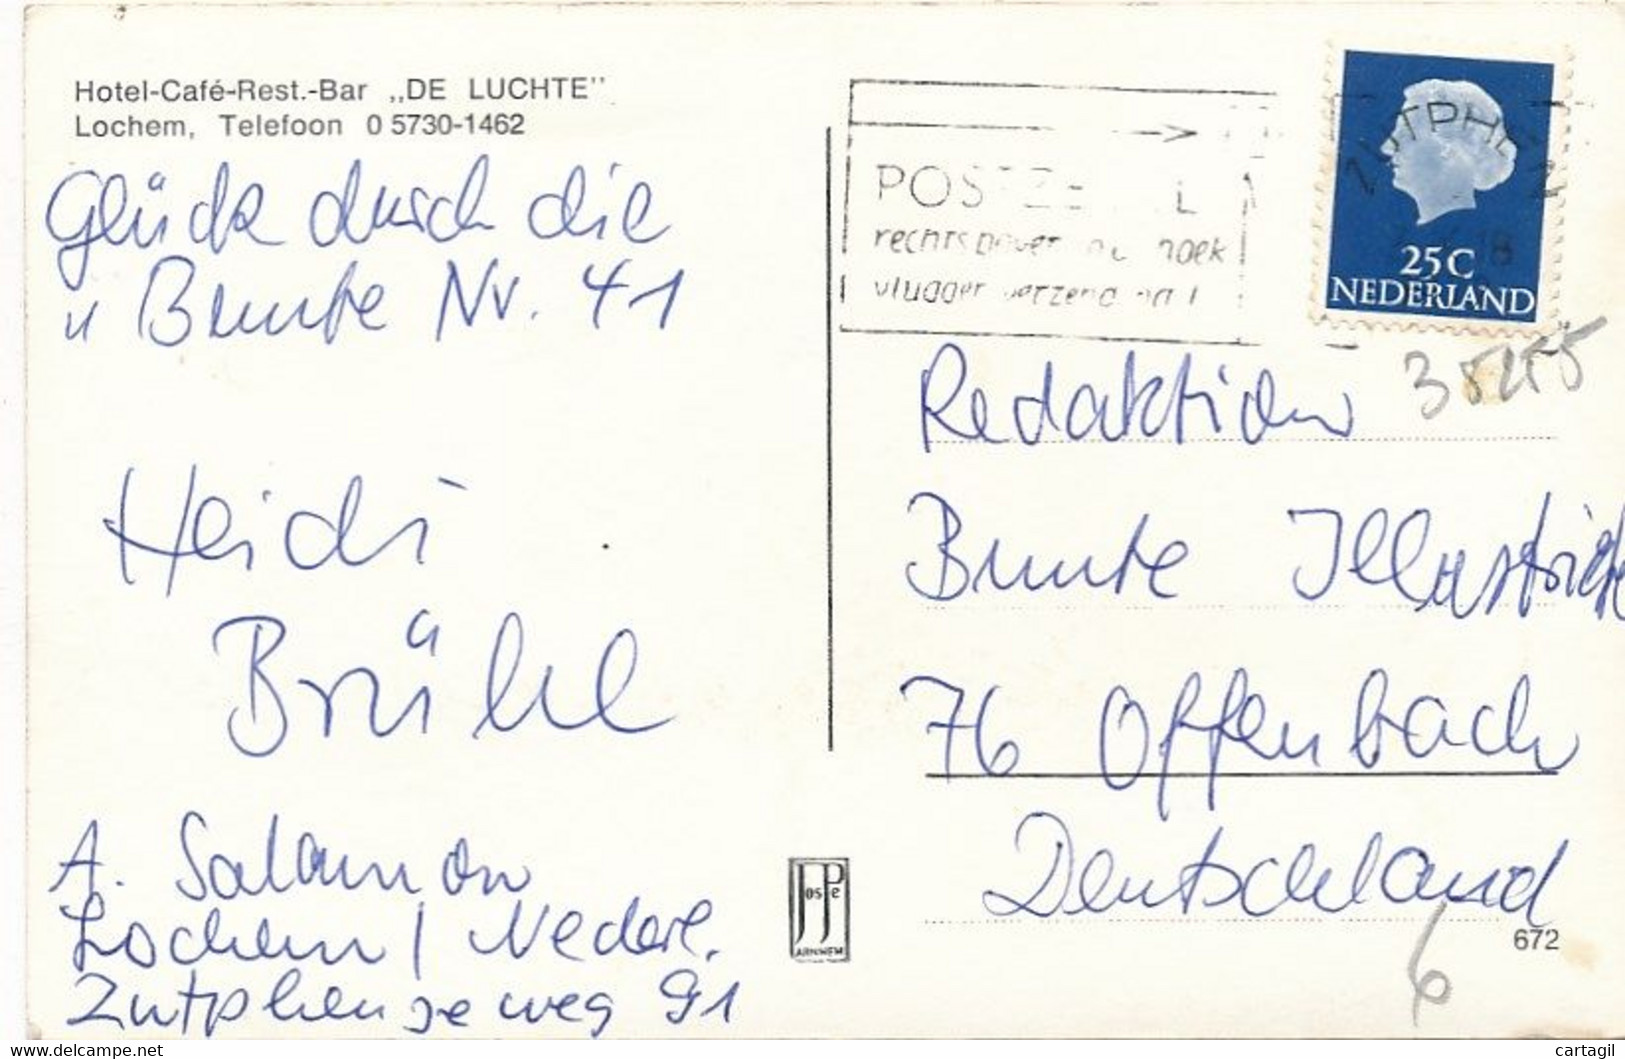 Hotel-Café-Rest.-Bar „DE LUCHTE”
Lochem, Telefoon 0 5730-1462
Glück durch die
" Bunte Nr. 41
Heidi
Brühl
A. Salamon
Lochem / Nederl.
Zutphenseweg 91
JosPé
ARNHEM
POSTZEGEL
rechtsboven
vlugger
ZUTPHEN
25 C
NEDERLAND
35455
Redaktion
Bunte Illustrierte
76 Offenbach
Deutschland
672
6
www.delcampe.net
cartagil